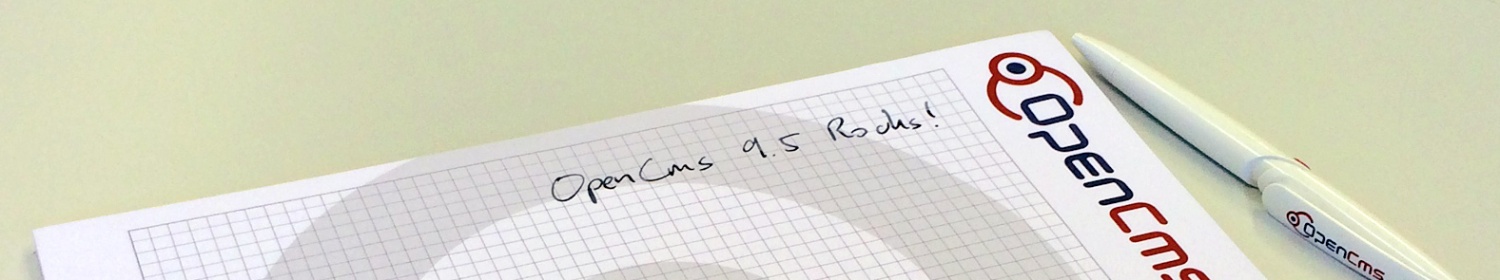 OpenCms 9.5 Rocks!
OpenCms
OpenCms